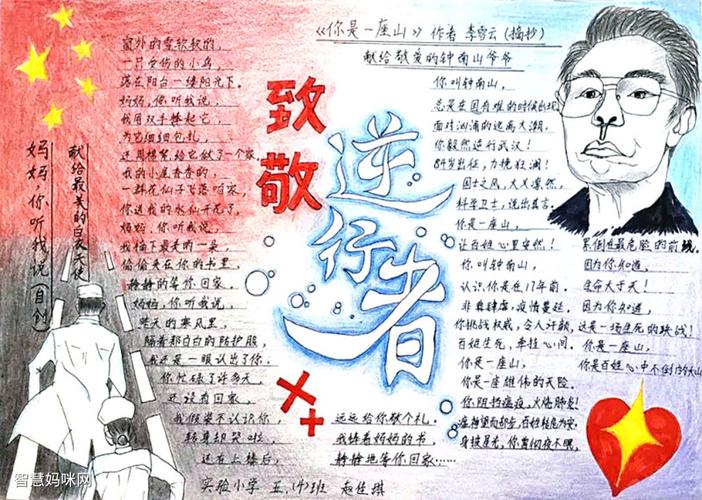 妈妈，你听我说（自创）
献给最美的白衣天使
窗外的雪软软的，
一只受伤的小鸟，
落在阳台一缕阳光下。
妈妈，你听我说，
我用双手捧起它，
为它细细包扎，
还用棉絮给它做了一个家，
我的小屋香香的，
一群花仙子飞落咱家，
你送我的水仙开花了，
妈妈，你听我说，
我摘下最美的一朵，
偷偷夹在你的书里，
静静的等你回家。
妈妈，你听我说，
昨天的寒风里，
隔着那白白的防护服，
我还是一眼认出了你，
你忙碌了许多天，
还没有回家，
我假装不认识你，
转身却哭啦，
还在上楼后，
远远给你敬个礼。
我捧着妈妈的书，
静静地等你回家……
致敬
逆行者
《你是一座山》作者 李雪云（摘抄）
献给敬爱的钟南山爷爷
你叫钟南山，
总是在国有难的时候出现，
面对汹涌的逃离大潮，
你毅然逆行武汉！
84岁出征，力挽狂澜！
国士之风，大义凛然，
科学卫士，说出真言。
你是一座山，
让百姓心里安然！
你叫钟南山，
认识你是在17年前，
非典肆虐，疫情蔓延，
你挑战权威，令人汗颜，
百姓生死，牵挂心间。
你是一座山，
你是一座雄伟的天险。
你阴挡瘟疫，火烙肺炎！
身披星光，你贯彻夜不眠，
累倒在最危险的前线。
因为你知道，
生命大于天！
因为你知道，
这是一场生死的决战！
你是一座山，
你是百姓心中不倒的大山
实验小学 五.（4）班 赵佳琪
智慧妈咪网